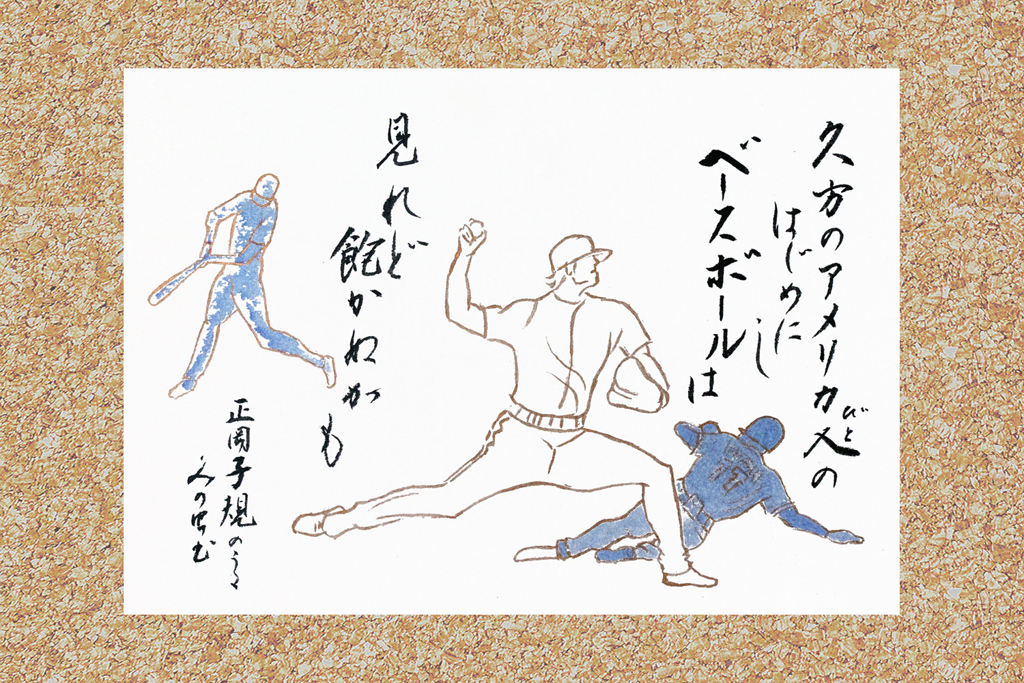 久方のアメリカ人の
びと
はじめにし
ベースボールは
見れど
飽かぬかも
正岡子規のうた